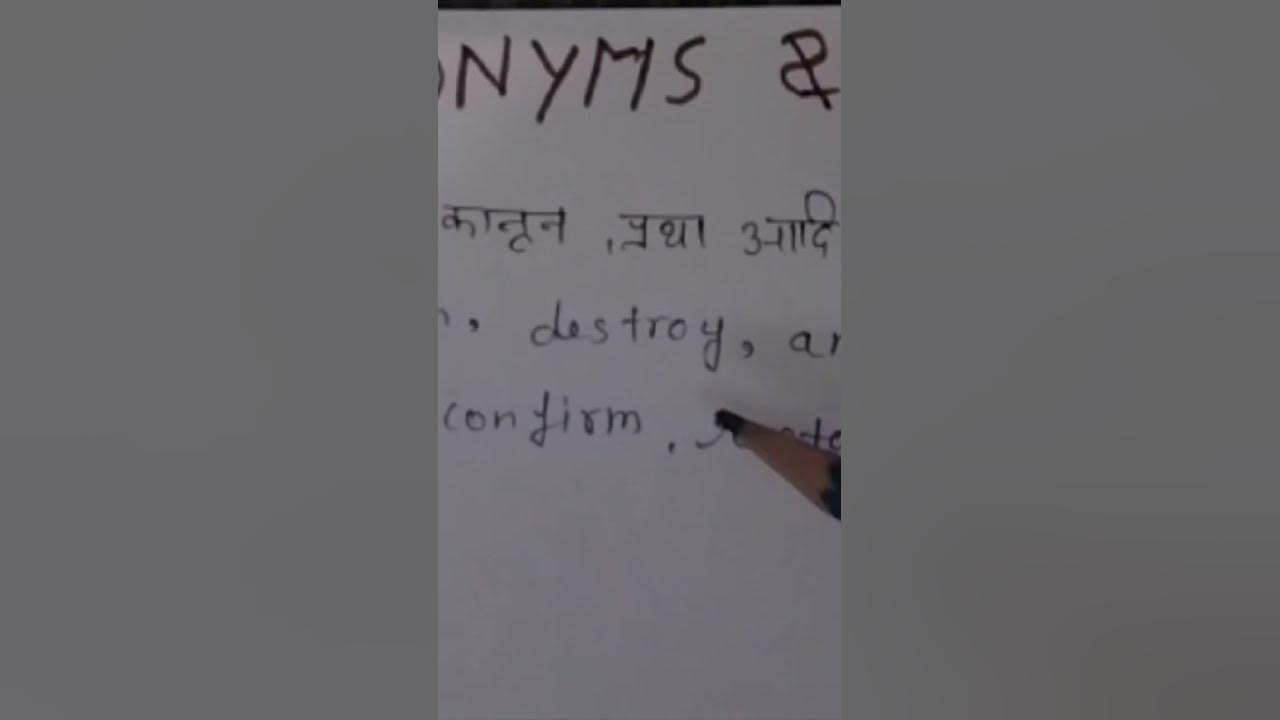 ONYMS &
कानून, प्रथा आदि
, destroy, an
confirm,